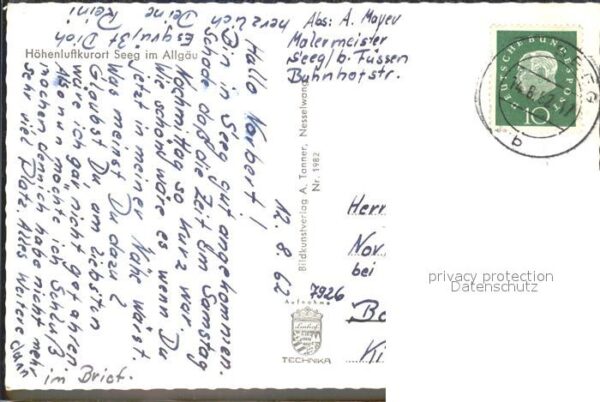 Höhenluftkurort Seeg im Allgäu
Hallo Norbert!
12.8.62
Bin in Seeg gut angekommen.
Schade daß die Zeit am Samstag
Nachmittag so kurz war.
Wie schön wäre es wenn Du
jetzt in meiner Nähe wärst.
Was meinst Du dazu?
Glaubst Du, am liebsten
wäre ich gar nicht gefahren
Also nun möchte ich Schluß
machen denn ich habe nicht mehr
sehr viel Platz. Alles weitere dann
im Brief.
Es grüßt Dich
herzlich
Deine
Reini
Bildkunstverlag A. Tanner, Nesselwang
Nr. 1982
Abs: A. Mayer
Malermeister
Seeg/b. Füssen
Bahnhofstr.
DEUTSCHE BUNDESPOST
10
SEEG
Herr
Nor
bei
7926
Aufnahme
TECHNIKA
privacy protection
Datenschutz